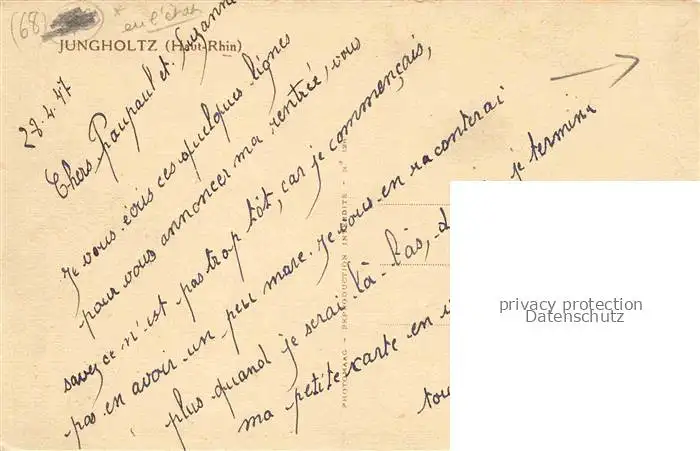 (68)
* en l'état
JUNGHOLTZ (Haut-Rhin)
28.4.47
Chers Paupaul et Suzanne
Je vous écris ces quelques lignes
pour vous annoncer ma rentrée, vous
savez ce n'est pas trop tôt, car je commençais,
pas en avoir un peu marre. Je vous en raconterai
plus quand je serai là-bas, je termine
ma petite carte en
PHOTOMAG - REPRODUCTION INTERDITE - N°
privacy protection
Datenschutz